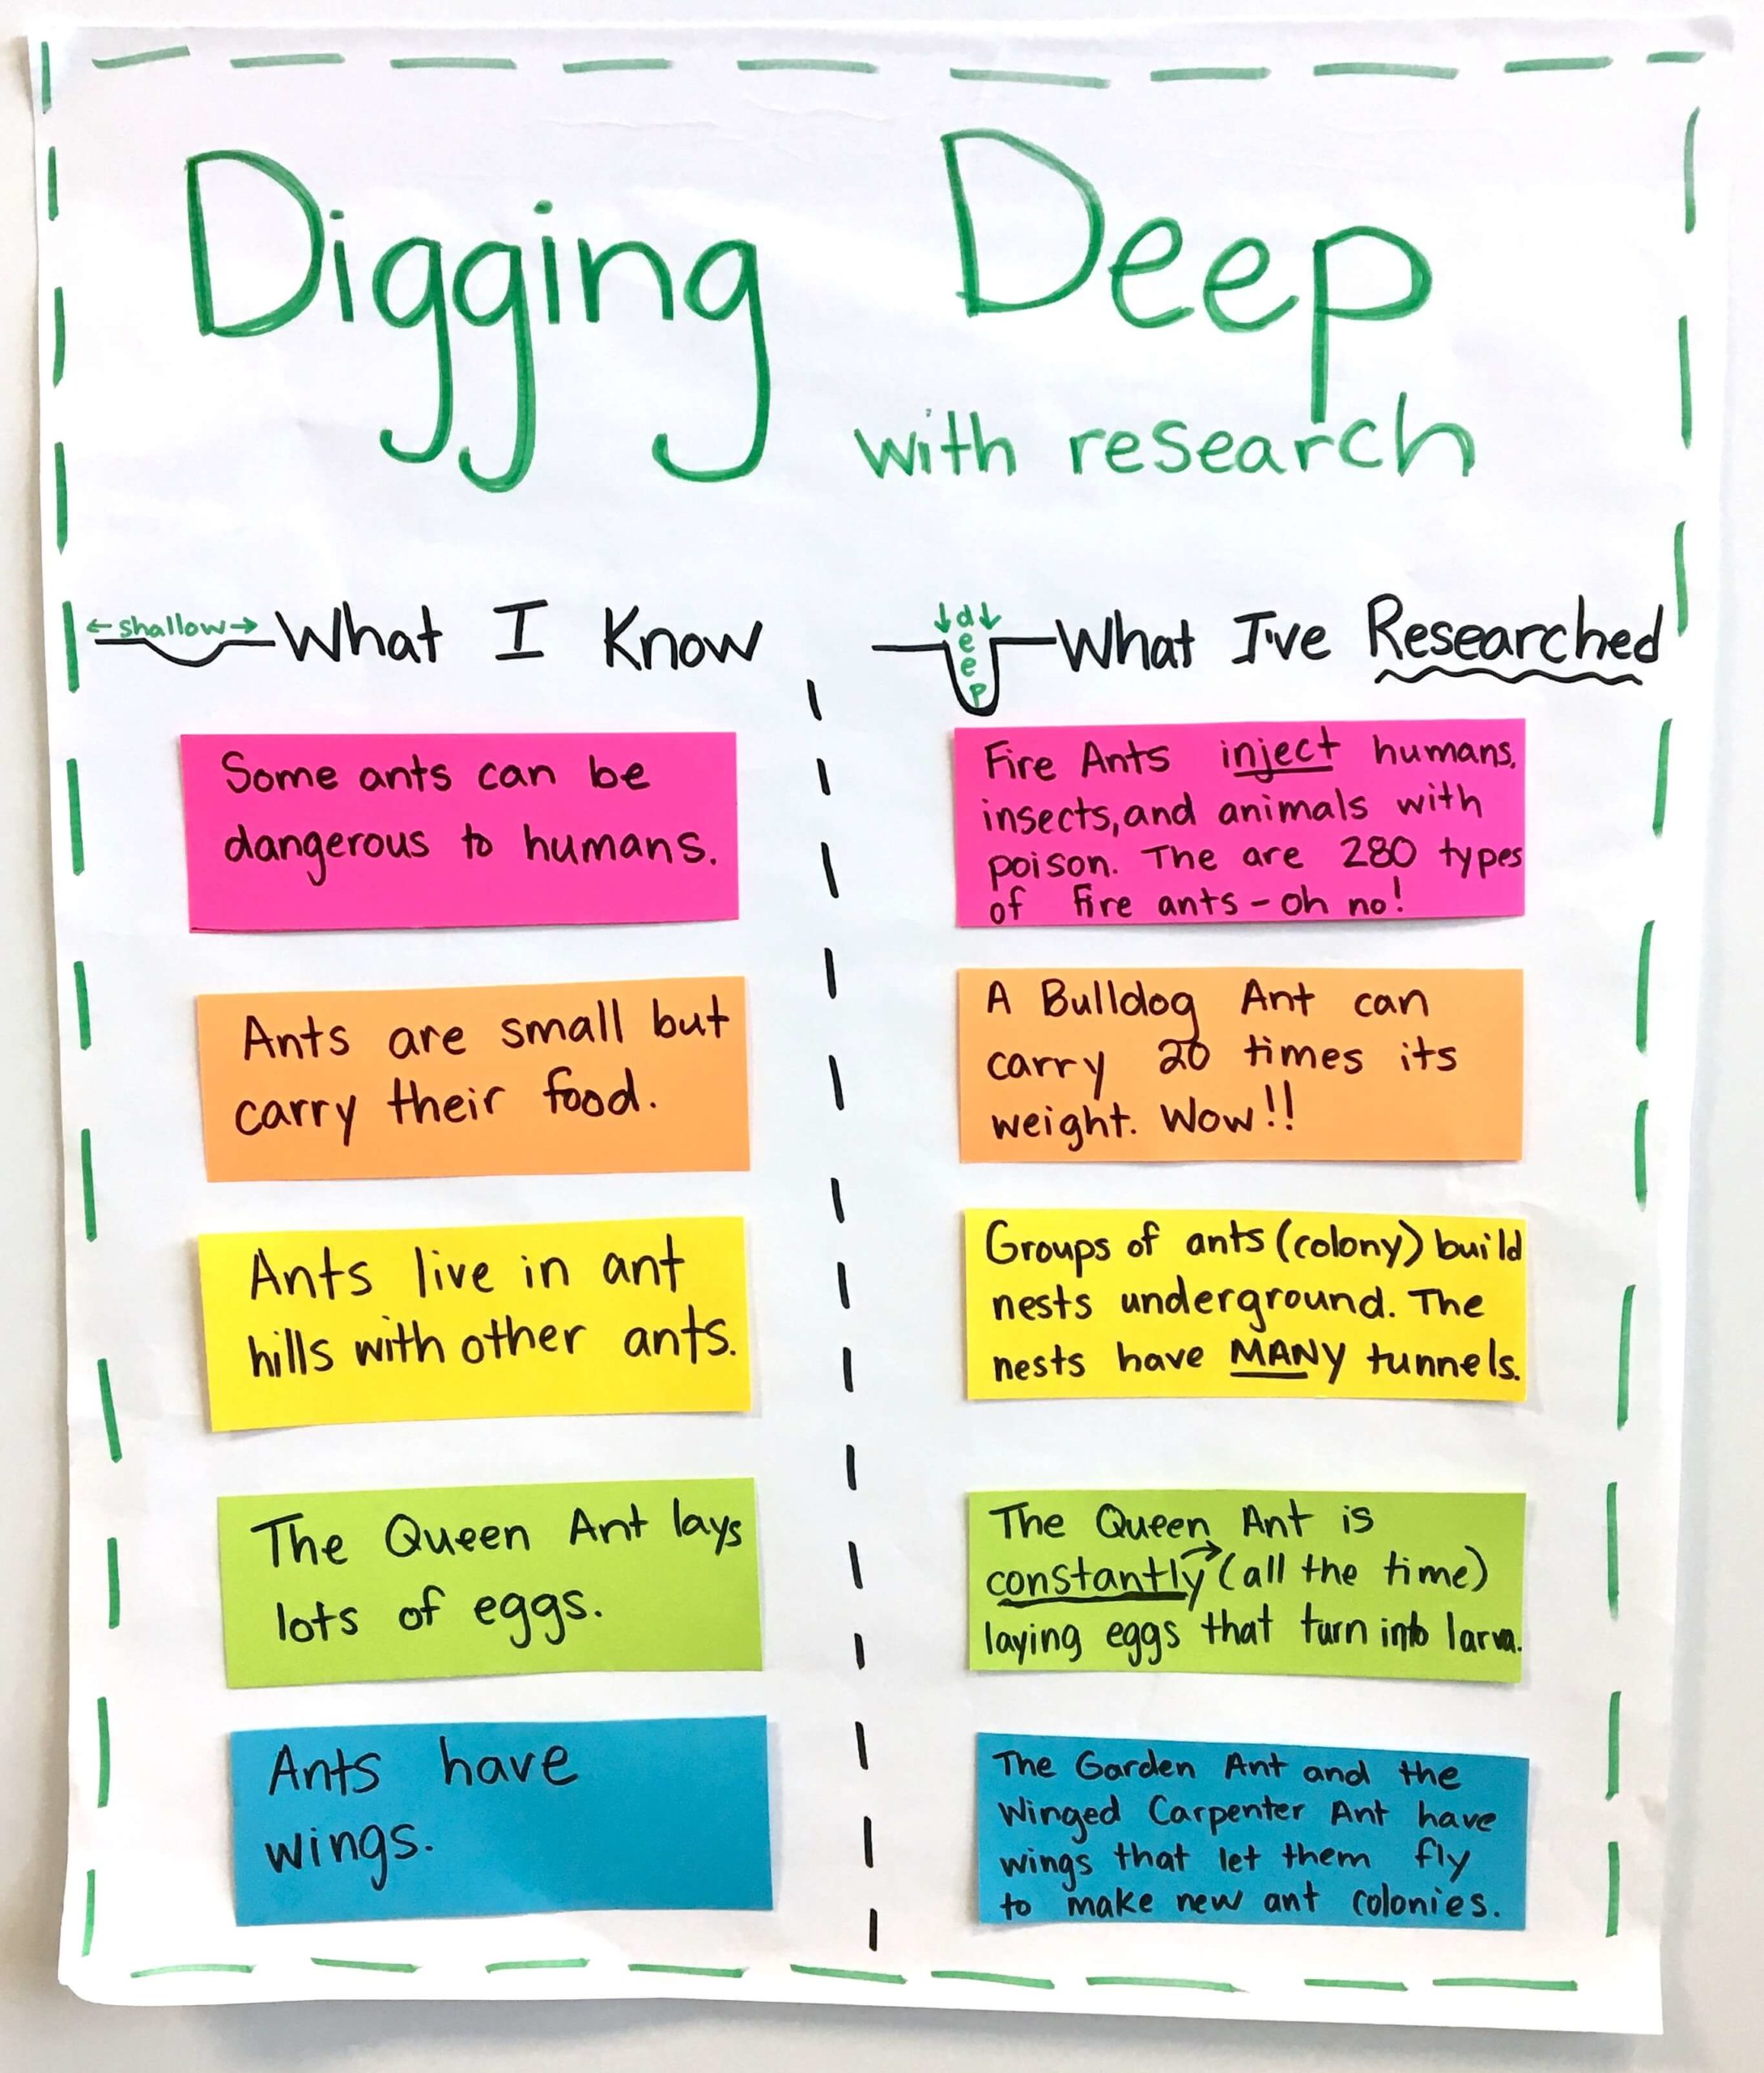 Digging Deep
with research
←shallow→ What I Know
Some ants can be
dangerous to humans.
Ants are small but
carry their food.
Ants live in ant
hills with other ants.
The Queen Ant lays
lots of eggs.
Ants have
wings.
↓deep↓ What I've Researched
Fire Ants inject humans,
insects, and animals with
poison. The are 280 types
of fire ants - oh no!
A Bulldog Ant can
carry 20 times its
weight. Wow!!
Groups of ants (colony) build
nests underground. The
nests have MANY tunnels.
The Queen Ant is
constantly → (all the time)
laying eggs that turn into larva.
The Garden Ant and the
Winged Carpenter Ant have
wings that let them fly
to make new ant colonies.